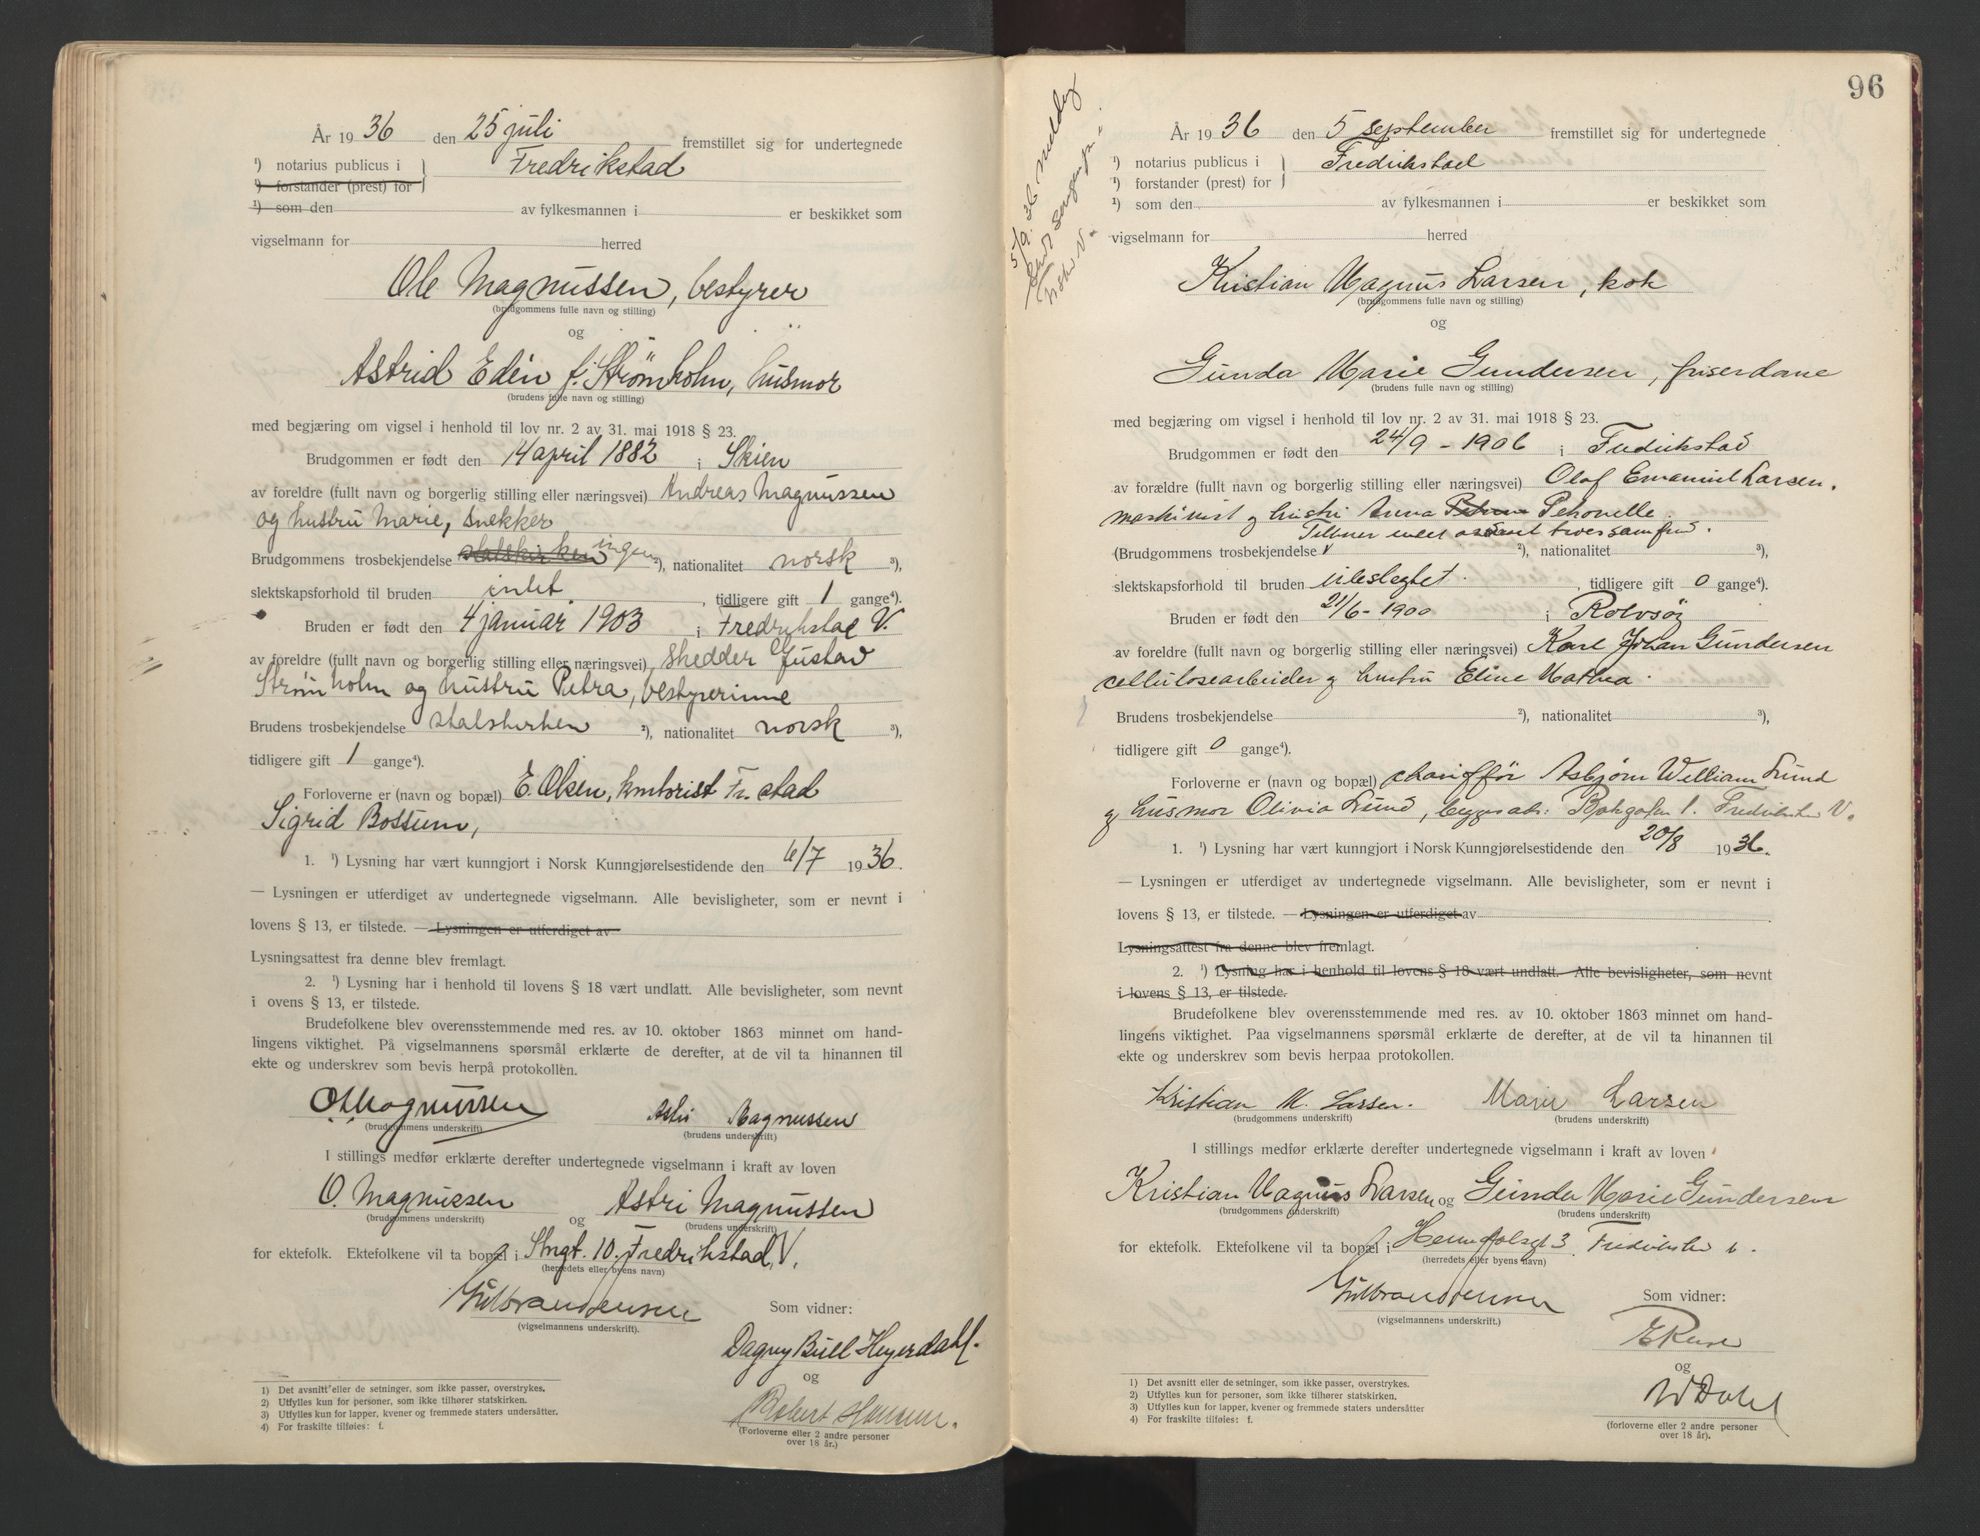 År 1936 den 25 juli fremstillet sig for undertegnede
¹) notarius publicus i Fredrikstad
¹) forstander (prest) for
¹) som den av fylkesmannen i er beskikket som
vigselmann for herred
Ole Magnussen, bestyrer
(brudgommens fulle navn og stilling)
og
Astrid Edén f. Strømholm, husmor
(brudens fulle navn og stilling)
med begjæring om vigsel i henhold til lov nr. 2 av 31. mai 1918 § 23.
Brudgommen er født den 14 april 1882 i Skien
av foreldre (fullt navn og borgerlig stilling eller næringsvei) Andreas Magnussen
og hustru Marie, snekker
Brudgommens trosbekjendelse statskirken ingen ²), nationalitet norsk ³),
slektskapsforhold til bruden intet, tidligere gift 1 gange⁴).
Bruden er født den 4 januar 1903 i Fredrikstad V.
av foreldre (fullt navn og borgerlig stilling eller næringsvei) skedder Gustav
Strømholm og hustru Petra, bestyrerinne
Brudens trosbekjendelse statskirken ²), nationalitet norsk ³),
tidligere gift 1 gange⁴).
Forloverne er (navn og bopæl) E. Olsen, kontorist Fr.stad
Sigrid Bossum,
1. ¹) Lysning har vært kunngjort i Norsk Kunngjørelsestidende den 6/7 1936.
— Lysningen er utferdiget av undertegnede vigselmann. Alle bevisligheter, som er nevnt i
lovens § 13, er tilstede. — Lysningen er utferdiget av
Lysningsattest fra denne blev fremlagt.
2. ¹) Lysning har i henhold til lovens § 18 vært undlatt. Alle bevisligheter, som nevnt
i ovens § 13, er tilstede.
Brudefolkene blev overensstemmende med res. av 10. oktober 1863 minnet om hand-
lingens viktighet. På vigselmannens spørsmål erklærte de derefter, at de vil ta hinannen til
ekte og underskrev som bevis herpå protokollen.
O Magnussen Astri Magnussen
(brudgommens underskrift) (brudens underskrift)
I stillings medfør erklærte derefter undertegnede vigselmann i kraft av loven
O. Magnussen og Astri Magnussen
(brudgommens underskrift) (brudens underskrift)
for ektefolk. Ektefolkene vil ta bopæl i Stngt. 10. Fredrikstad V.
(herredets eller byens navn)
Gulbrandsensen
(vigselmannens underskrift).
Som vidner:
Dagny Bull Heyerdahl.
og
Robert
(Forloverne eller 2 andre personer
over 18 år.)
1) Det avsnitt eller de setninger, som ikke passer, overstrykes.
2) Utfylles kun for personer, som ikke tilhører statskirken.
3) Utfylles kun for lapper, kvener og fremmede staters undersåtter.
4) For fraskilte tilføies: f.
96
5/9. 36 melding
År 1936 den 5 september fremstillet sig for undertegnede
¹) notarius publicus i Fredrikstad
¹) forstander (prest) for
¹) som den av fylkesmannen i er beskikket som
vigselmann for herred
Kristian Magnus Larsen, kok
(brudgommens fulle navn og stilling)
og
Gunda Marie Gundersen, friserdame
(brudens fulle navn og stilling)
med begjæring om vigsel i henhold til lov nr. 2 av 31. mai 1918 § 23.
Brudgommen er født den 24/9 - 1906 i Fredrikstad
av forældre (fullt navn og borgerlig stilling eller næringsvei) Olaf Emanuel Larsen,
maskinist og hustru Anna Petronelle.
Tilhører intet trossamfund.
(Brudgommens trosbekjendelse ²), nationalitet ³),
slektskapsforhold til bruden ubeslegtet., tidligere gift 0 gange⁴).
Bruden er født den 21/6 - 1900 i Rolvsøy
av foreldre (fullt navn og borgerlig stilling eller næringsvei) Karl Johan Gundersen
cellulosearbeider og hustru Eline Mathea.
Brudens trosbekjendelse ²), nationalitet ³),
tidligere gift 0 gange⁴).
Forloverne er (navn og bopæl) chauffør Asbjørn William Lund
og husmor Olivia Lund, begges adr: 1. Fredrikstad V.
1. ¹) Lysning har vært kunngjort i Norsk Kunngjørelsestidende den 20/8 1936.
— Lysningen er utferdiget av undertegnede vigselmann. Alle bevisligheter, som er nevnt i
lovens § 13, er tilstede. — Lysningen er utferdiget av
Lysningsattest fra denne blev fremlagt.
2. ¹) Lysning har i henhold til lovens § 18 vært undlatt. Alle bevisligheter, som nevnt
i lovens § 13, er tilstede.
Brudefolkene blev overensstemmende med res. av 10. oktober 1863 minnet om hand-
lingens viktighet. Paa vigselmannens spørsmål erklærte de derefter, at de vil ta hinannen til
ekte og underskrev som bevis herpaa protokollen.
Kristian M. Larsen. Marie Larsen
(brudgommens underskrift) (brudens underskrift)
I stillings medfør erklærte derefter undertegnede vigselmann i kraft av loven
Kristian Magnus Larsen og Gunda Marie Gundersen
(brudgommens underskrift) (brudens underskrift)
for ektefolk. Ektefolkene vil ta bopæl i 3 Fredrikstad
(herredets eller byens navn)
(vigselmannens underskrift.)
Som vidner:
og
W Dahl
(forloverne eller 2 andre personer
over 18 år).
1) Det avsnitt eller de setninger, som ikke passer, overstrykes.
2) Utfylles kun for personer, som ikke tilhører statskirken.
3) Utfylles kun for lapper, kvener og fremmede staters undersåtter
4) For fraskilte tilføies: f.